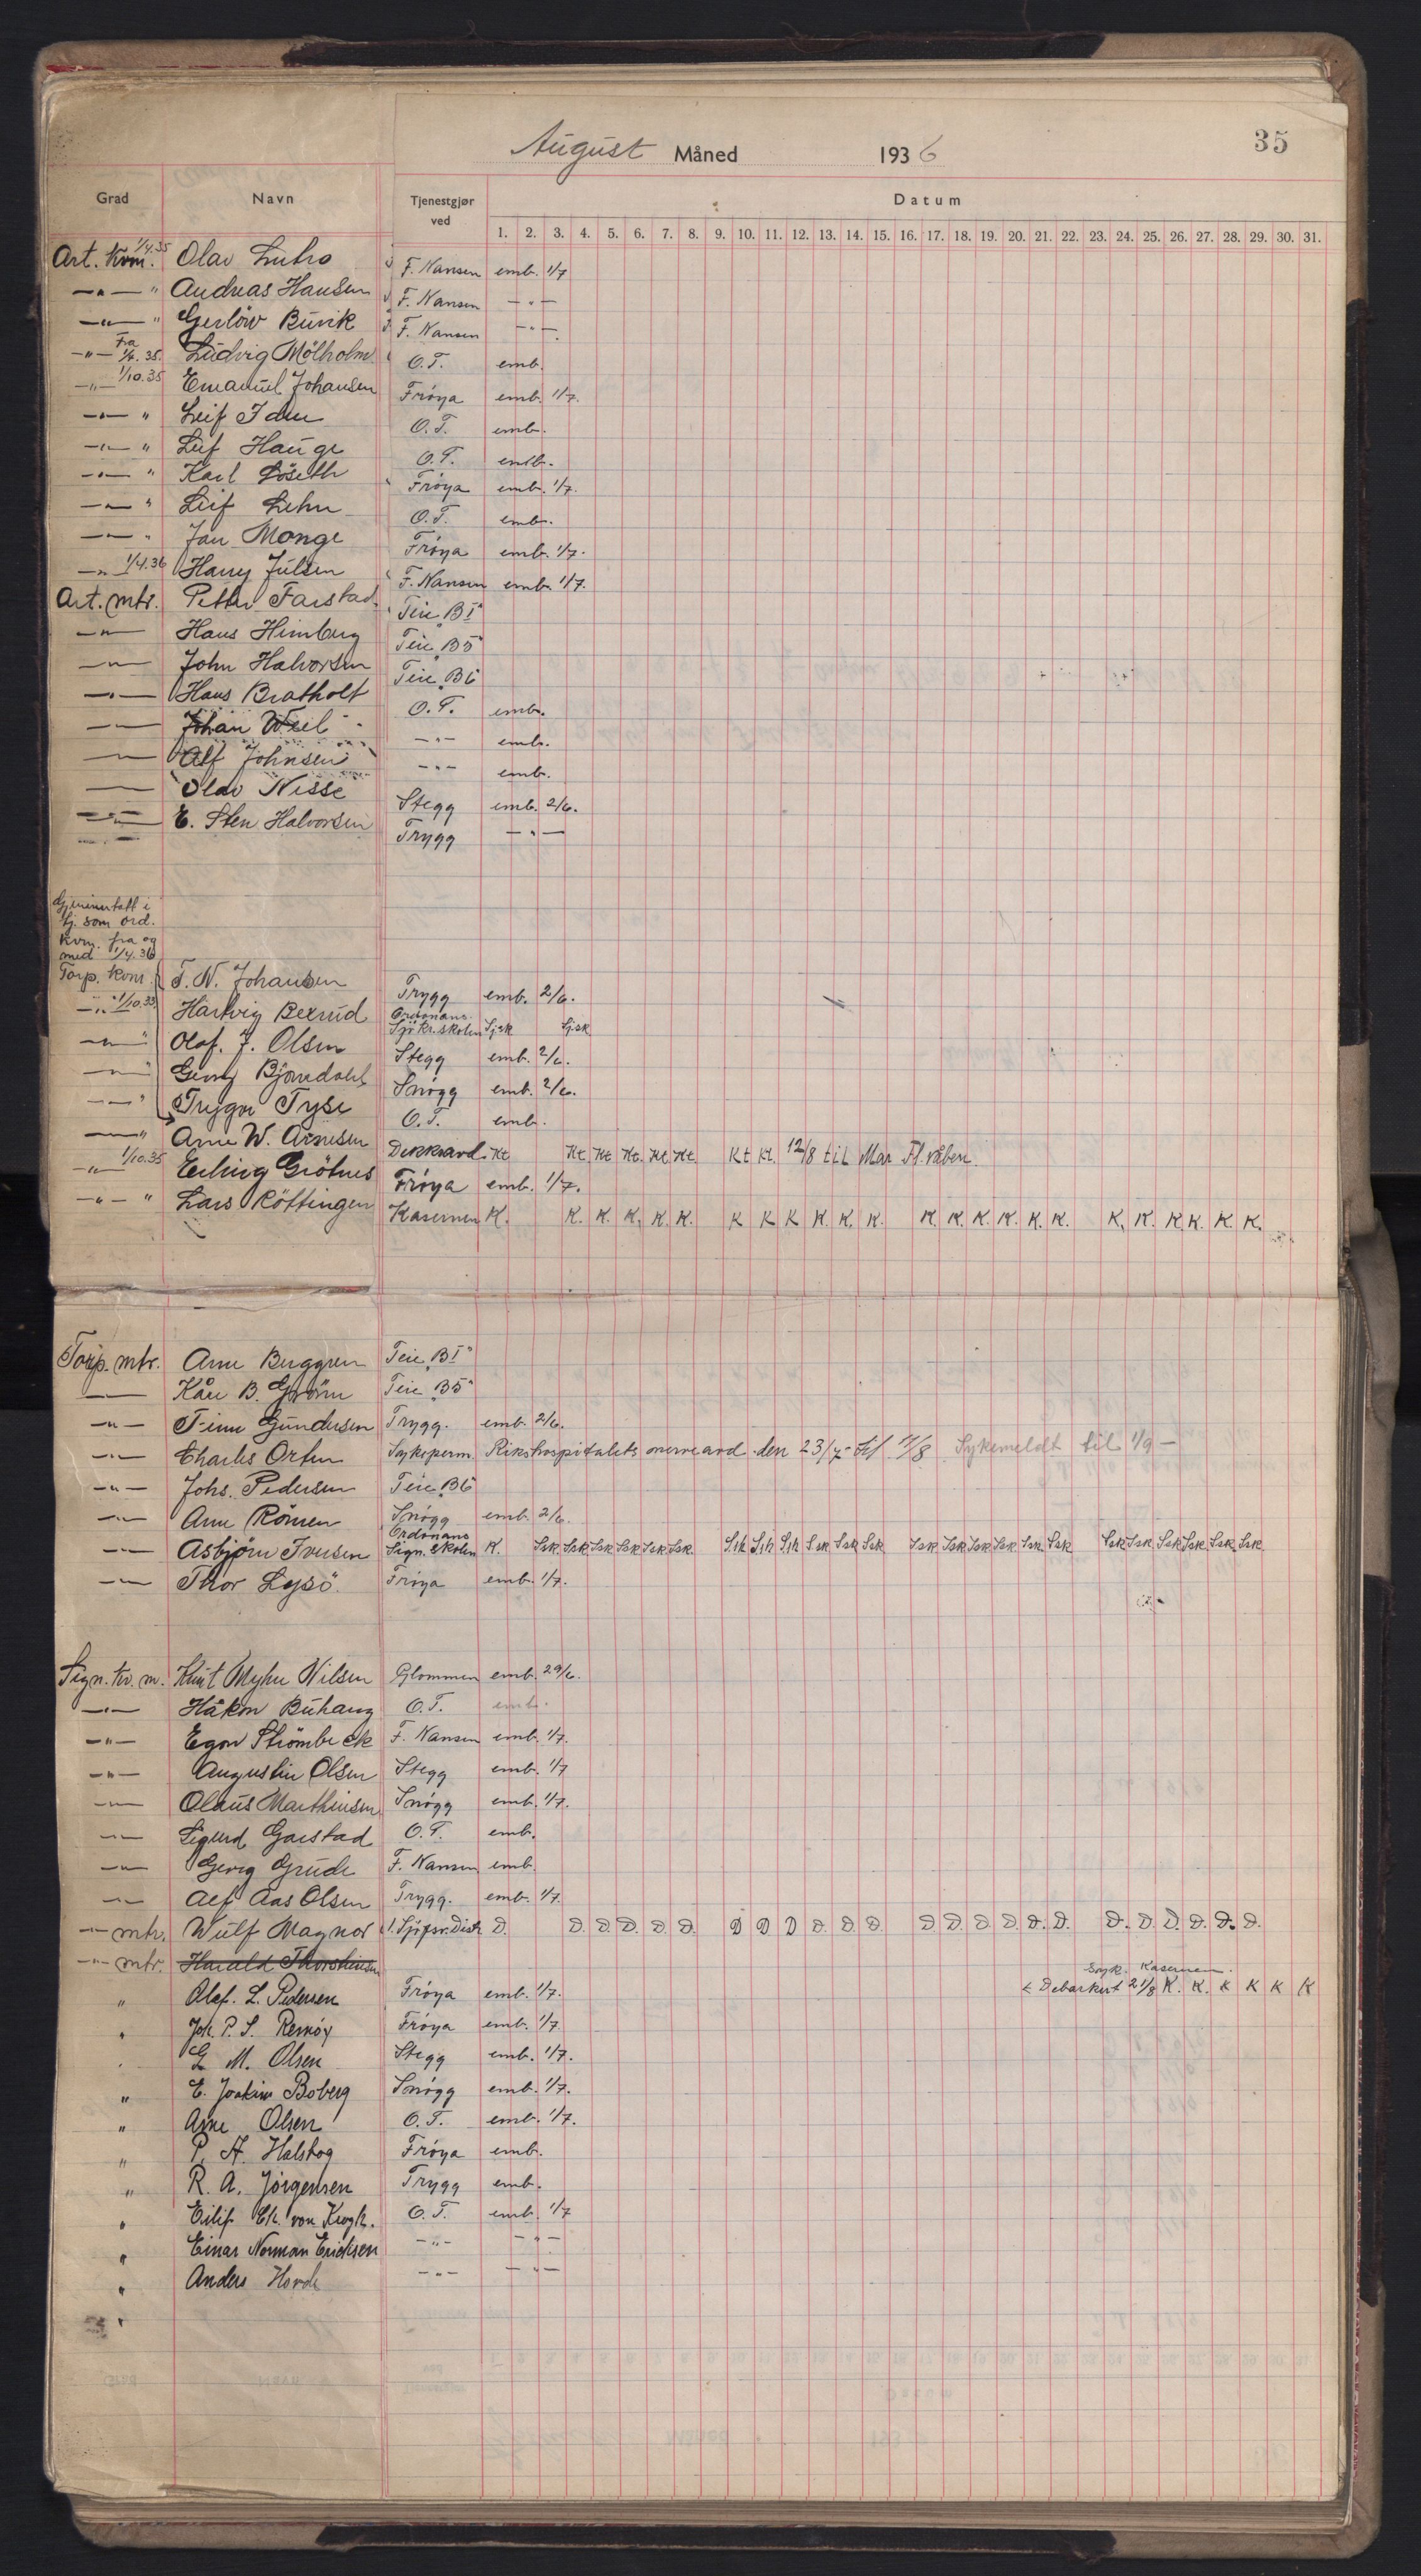 August Måned 1936
35
Grad Navn Tjenestgjør ved Datum
1. 2. 3. 4. 5. 6. 7. 8. 9. 10. 11. 12. 13. 14. 15. 16. 17. 18. 19. 20. 21. 22. 23. 24. 25. 26. 27. 28. 29. 30. 31.
Art. kvm. 1/4.35 Olav F. Nansen emb. 1/7
—"— " Andreas Hansen F. Nansen —"—
—"— " Gerlöw Buvik F. Nansen —"—
—"— Fra Ludvig Mölholm O.T. emb.
—"— 1/10.35 Emanuel Johansen Fröya emb. 1/7.
—"— " Leif O.T. emb.
—"— " Leif Hauge O.T. emb.
—"— " Karl Löseth Fröya emb. 1/7.
—"— " Leif Lehn O.T. emb.
—"— " Jan Monge Fröya emb. 1/7.
—"— 1/4.36 Harry Julsen F. Nansen emb. 1/7.
Art. mtr. Petter Farstad Teie „B1"
—"— Hans Himberg Teie „B5"
—"— John Halvorsen Teie „B6
—"— Hans Bratholt O.T. emb.
—"— Johan —"— emb.
—"— Alf Johnsen —"— emb.
—"— Olav Nisse Stegg emb. 2/6.
—"— E. Sten Halvorsen Trygg —"—
Gjeninntatt i
tj. som ord.
kvm. fra og
med 1/4.36
Torp. kvm. T. N. Johansen Trygg emb. 2/6.
—"— 1/10.35 Hartvig Bexrud Ordonans Sjökr.skolen Sjsk Sjsk
—"— " Olaf. J. Olsen Stegg emb. 2/6.
—"— " Georg Bjørndahl Snögg emb. 2/6.
—"— " Trygve Tyse O.T. emb.
—"— " Arne W. Arnesen Dekksavd. Kt Kt. Kt Kt. Kt Kt. Kt Kt. 12/8 til Mar. Fl.
—"— 1/10.35 Erling Grötnes Fröya emb. 1/7.
—"— " Lars Röttingen Kasernen K. K. K. K. K. K. K K K K. K. K. K. K. K. K. K. K. K. K. K. K. K. K.
Torp. mtr. Arne Berggren Teie „B1"
—"— Kåre B. Teie „B5"
—"— Finn Gundersen Trygg. emb. 2/6.
—"— Charles Orten Sykeperm. Rikshospitalets nerveavd. den 23/7 - til 11/8 Sykemeldt til 1/9 —
—"— Johs. Pedersen Teie „B6
—"— Arne Rönsen Snögg emb. 2/6.
—"— Asbjørn Iversen Ordonans Sign. skolen K. Ssk. Ssk. Ssk Ssk Ssk Ssk. Ssk Ssk Ssk Ssk Ssk Ssk Ssk Ssk Ssk Ssk Ssk Ssk Ssk Ssk Ssk Ssk Ssk Ssk
—"— Thor Lysö. Fröya emb. 1/7.
Sign. kv. m. Knut Myhre Nilsen Glommen emb. 29/6.
—"— Håkon Buhaug O.T. emb.
—"— Egon Strömbeck F. Nansen emb. 1/7.
—"— Augustin Olsen Stegg emb. 1/7
—"— Olaus Marthinsen Snögg emb. 1/7.
—"— Sigurd Garstad O.T. emb.
—"— Georg Grude F. Nansen emb.
—"— Alf Aas Olsen Trygg. emb. 1/7.
—"— mtr. Wulf Magnor 1. Sjöfsv. Distr. D. D. D. D. D. D. D D D D. D. D. D D. D. D. D. D. D. D. D. D. D. D.
—"— mtr. Harald Thorstensen
" Olaf. L. Pedersen Fröya emb. 1/7. Debarkert 21/8 Kasernen. K. K. K K K K
" Joh. P. S. Remöy Fröya emb. 1/7.
" M. Olsen Stegg emb. 1/7.
" E. Joakim Boberg Snögg emb. 1/7.
" Arne Olsen O.T. emb. 1/7.
" P. A. Halskog Fröya emb.
" R. A. Jörgensen Trygg emb.
" Eilif Chr. von Krogh. O.T. emb. 1/7
" Einar Norman Ericksen —"— —"—
" Anders —"— —"—
"